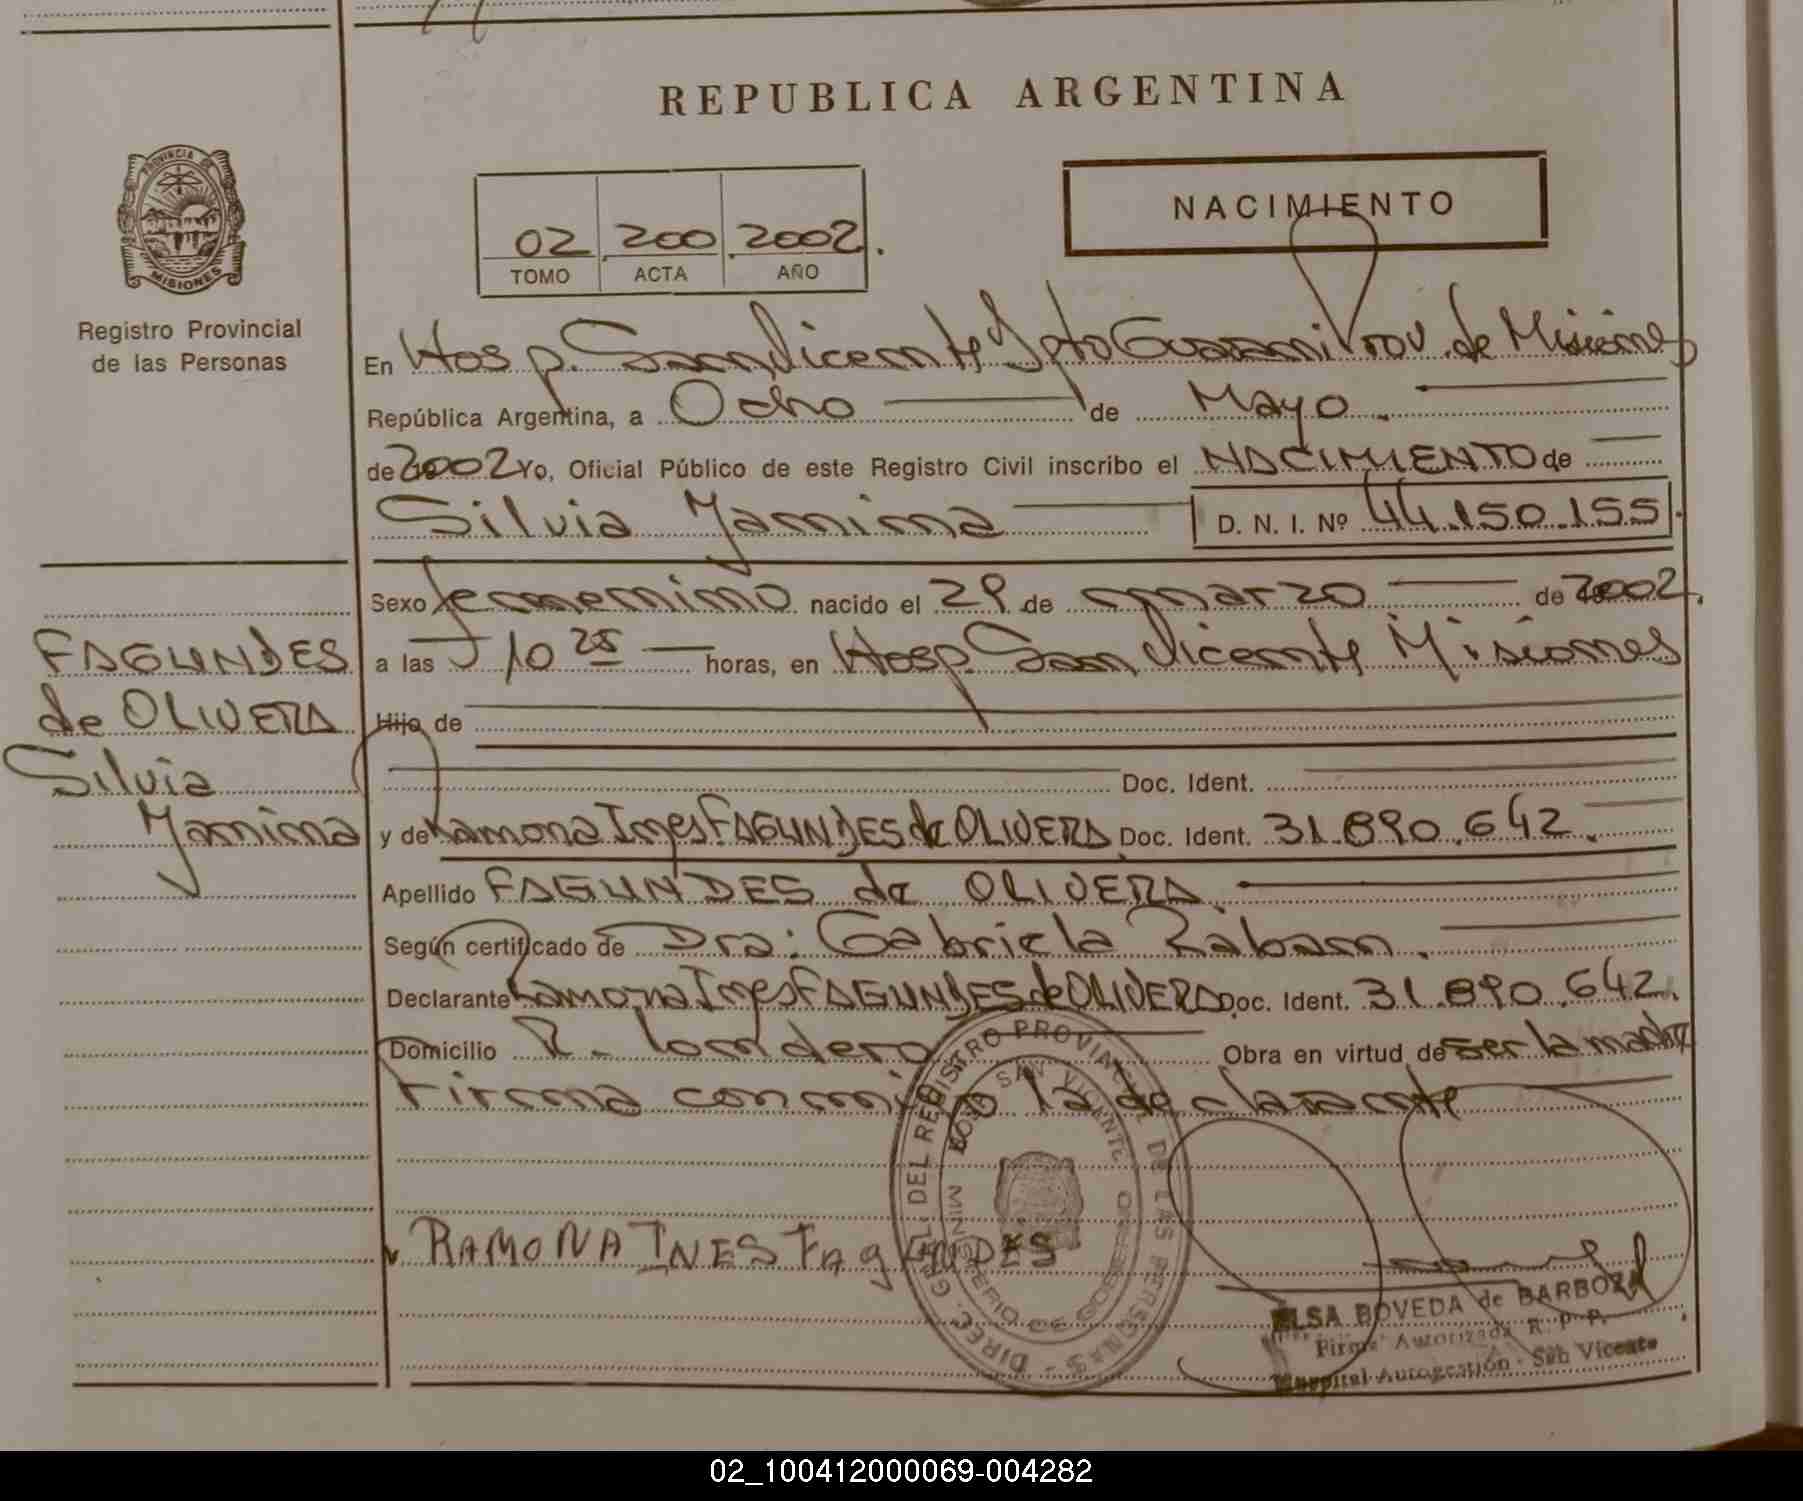 REPUBLICA ARGENTINA
PROVINCIA DE MISIONES
Registro Provincial
de las Personas
02 200 2002
TOMO ACTA AÑO
NACIMIENTO
En Hosp. San Vicente Dpto Guarani Prov. de Misiones
República Argentina, a Ocho de Mayo.
de 2002 Yo, Oficial Público de este Registro Civil inscribo el NACIMIENTO de
Silvia Yanina D. N. I. Nº 44.150.155
Sexo femenino nacido el 29 de marzo de 2002.
a las 10 25 horas, en Hosp. San Vicente Misiones
Hijo de
Doc. Ident.
y de Ramona Ines FAGUNDES de OLIVERA Doc. Ident. 31.890.642.
Apellido FAGUNDES de OLIVERA.
Según certificado de Dra: Gabriela Raban.
Declarante Ramona Ines FAGUNDES de OLIVERA Doc. Ident. 31.890.642.
Domicilio Obra en virtud de ser la madre
Firma conmigo la declarante
FAGUNDES
de OLIVERA
Silvia
Yanina
RAMONA INES FAgUNDES
DIREC. GRAL. DEL REGISTRO PROVINCIAL DE LAS PERSONAS
SAN VICENTE
MINISTERIO DE GOBIERNO
ELSA BOVEDA de BARBOZA
Firma Autorizada R. P. P.
Hospital Autogestión - San Vicente
02_100412000069-004282